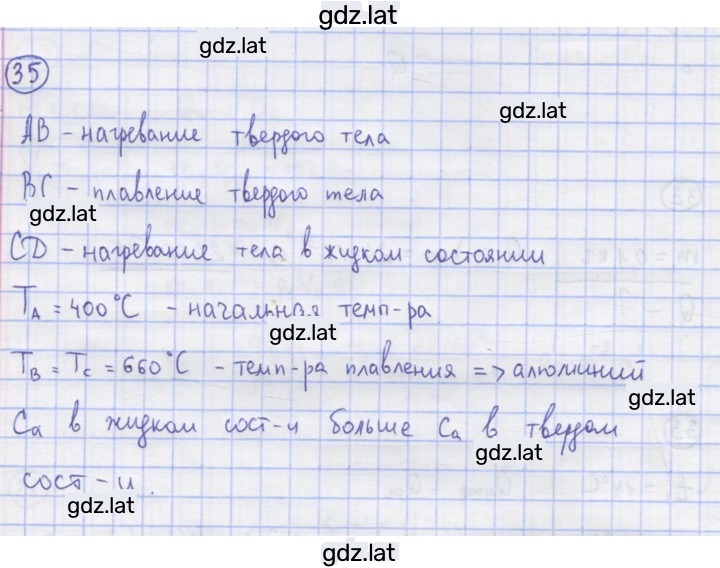 gdz.lat
gdz.lat
35
gdz.lat
AB - нагревание твердого тела
BC - плавление твердого тела
gdz.lat
CD - нагревание тела в жидком состоянии
T_A = 400°C - начальная темп-ра
gdz.lat
T_B = T_C = 660°C - темп-ра плавления => алюминий
gdz.lat
C_a в жидком сост-и больше C_a в твердом
gdz.lat
сост-и.
gdz.lat
gdz.lat